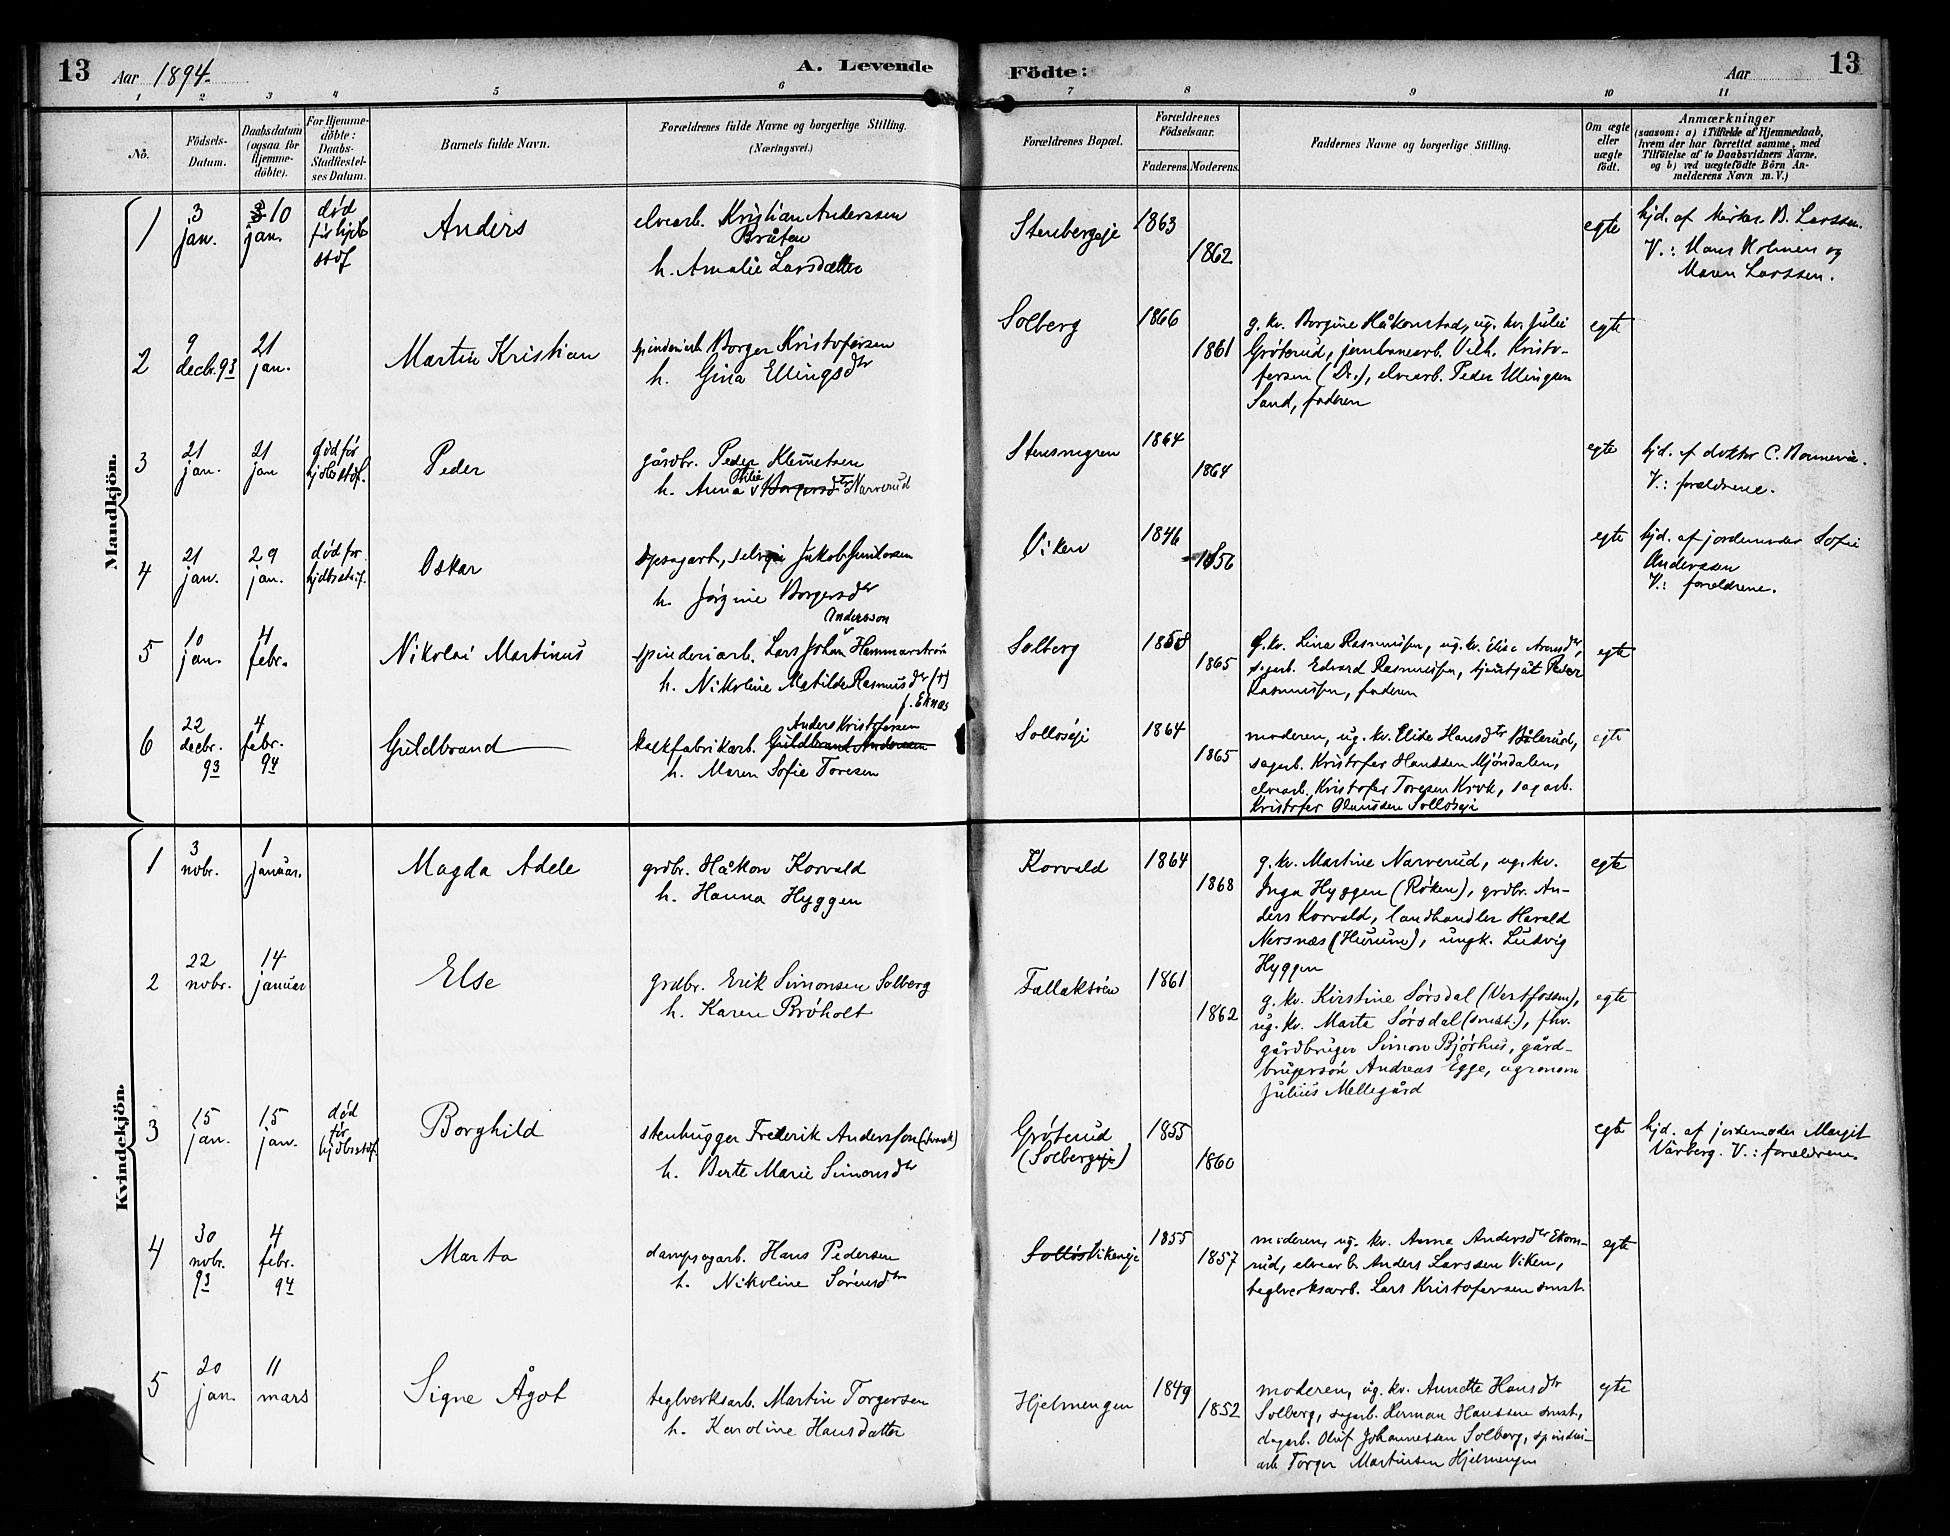 13 Aar 1894. A. Levende Födte: Aar 13
1 2 3 4 5 6 7 8 9 10 11
No.
Födsels-
Datum.
Daabsdatum
(ogsaa for
Hjemme-
döbte).
For Hjemme-
döbte:
Daabs-
Stadfæstel-
ses Datum.
Barnets fulde Navn.
Forældrenes fulde Navne og borgerlige Stilling.
(Næringsvei.)
Forældrenes Bopæl.
Forældrenes
Fødselsaar.
Faderens. Moderens.
Faddernes Navne og borgerlige Stilling.
Om ægte
eller
uægte
födt.
Anmærkninger
(saasom: a) i Tilfælde af Hjemmedaab,
hvem der har forrettet samme, med
Tilföielse af to Daabsvidners Navne,
og b) ved uægtefödte Börn An-
melderens Navn m. V.)
Mandkjön.
1
3
jan.
10
jan.
død
før hjdb
stdf
Anders
elvearb. Kristian Anderssen
Bråten
h. Amalie Larsdatter
Stenbergeje
1863
1862
egte
hjd. af kirkes. B. Larssen.
V.: Hans Holmen og
Maren Larssen.
2
9
decbr. 93
21
jan.
Martin Kristian
spinderiarb. Borger Kristofersen
h. Gina Ellingsdtr
Solberg
1866
1861
g. kv. Borgine Håkonstad, ug. kv. Julie
Grøterud, jernbanearb. Vilh. Kristo-
fersen (Dr.), elvearb. Peder Ellingsen
Sand, faderen
egte
3
21
jan.
21
jan
død før
hjdbstdf.
Peder
gårdbr. Peder Klemetsen
h. Anna Otilie Borgersdtr Narverud
Stensmyren
1864
1864
egte
hjd. af doktor C. Bonnevie.
V.: forældrene.
4
21
jan.
29
jan.
død for
hjdbstdf.
Oskar
opsagarb., selvei Jakob Gundersen
h. Jørgine Borgersdtr
Viken
1846
1856
egte
hjd. af jordemoder Sofie
Anderssen
V.: forældrene.
5
10
jan.
4
febr.
Nikolai Martinus
Andersson
spinderiarb. Lars Johan Hammarström
h. Nikoline Matilde Rasmusdtr (†)
f. Eknæs
Solberg
1858
1865
g. kv. Lina Rasmussen, ug. kv. Elise Arensdtr,
sagarb. Edvard Rasmussen, tjenstgut Peder
Rasmussen, faderen
egte
6
22
decbr.
93
4
febr.
94
Guldbrand
Anders Kristofersen
kalkfabrikarb. Guldbrand Andersen
h. Maren Sofie Toresen
Solloseje
1864
1865
moderen, ug. kv. Elise Hansdtr Bålerud,
sagarb. Kristofer Hanssen Mjöndalen,
elvearb. Kristofer Toresen Krok, sagarb.
Kristofer Olaussen Solloseje
egte
Kvindekjön.
1
3
nobr.
1
januar.
Magda Adele
grdbr. Håkon Korvald
h. Hanna Hyggen
Korvald
1864
1868
g. kv. Martine Narverud, ug. kv.
Inga Hyggen (Røken), grdbr. An-
ders Korvald, landhandler Harald
Nersnæs (Hurum), ungk. Ludvig
Hyggen
egte
2
22
nobr.
14
januar
Else
grdbr. Erik Simonsen Solberg
h. Karen Brøholt
Fallaksøen
1861
1862
g. kv. Kirstine Sørsdal (Vestfossen),
ug. kv. Marte Sørsdal (smst.), fhv.
gårdbruger Simon Bjørhus, gård-
brugersøn Andreas Egge, agronom
Julius Mellegård
egte
3
15
jan.
15
jan.
død
før
hjdbstdf.
Borghild
stenhugger Frederik Andersson (svensk)
h. Berte Marie Simonsdtr
Grøterud
(Solbergeje)
1855
1860
egte
hjd. af jordemoder Margit
Vårberg. V.: forældrene.
4
30
nobr.
93
4
febr.
94
Marta
dampsagarb. Hans Pedersen
h. Nikoline Sørensdtr
Solløs Vikeneje
1855
1857
moderen, ug. kv. Anna Andersdtr Ekorn-
rud, elvearb Anders Larssen Viken,
teglverksarb. Lars Kristofersen smst.
egte
5
20
jan.
11
mars
Signe Ågot
teglverksarb. Martin Torgersen
h. Karoline Hansdatter
Hjelmengen
1849
1852
moderen, ug. kv. Annette Hansdtr
Solberg, sagarb. Herman Hanssen smst,
dagarb. Oluf Johannessen Solberg, spinderi-
arb Torger Martinsen Hjelmengen
egte